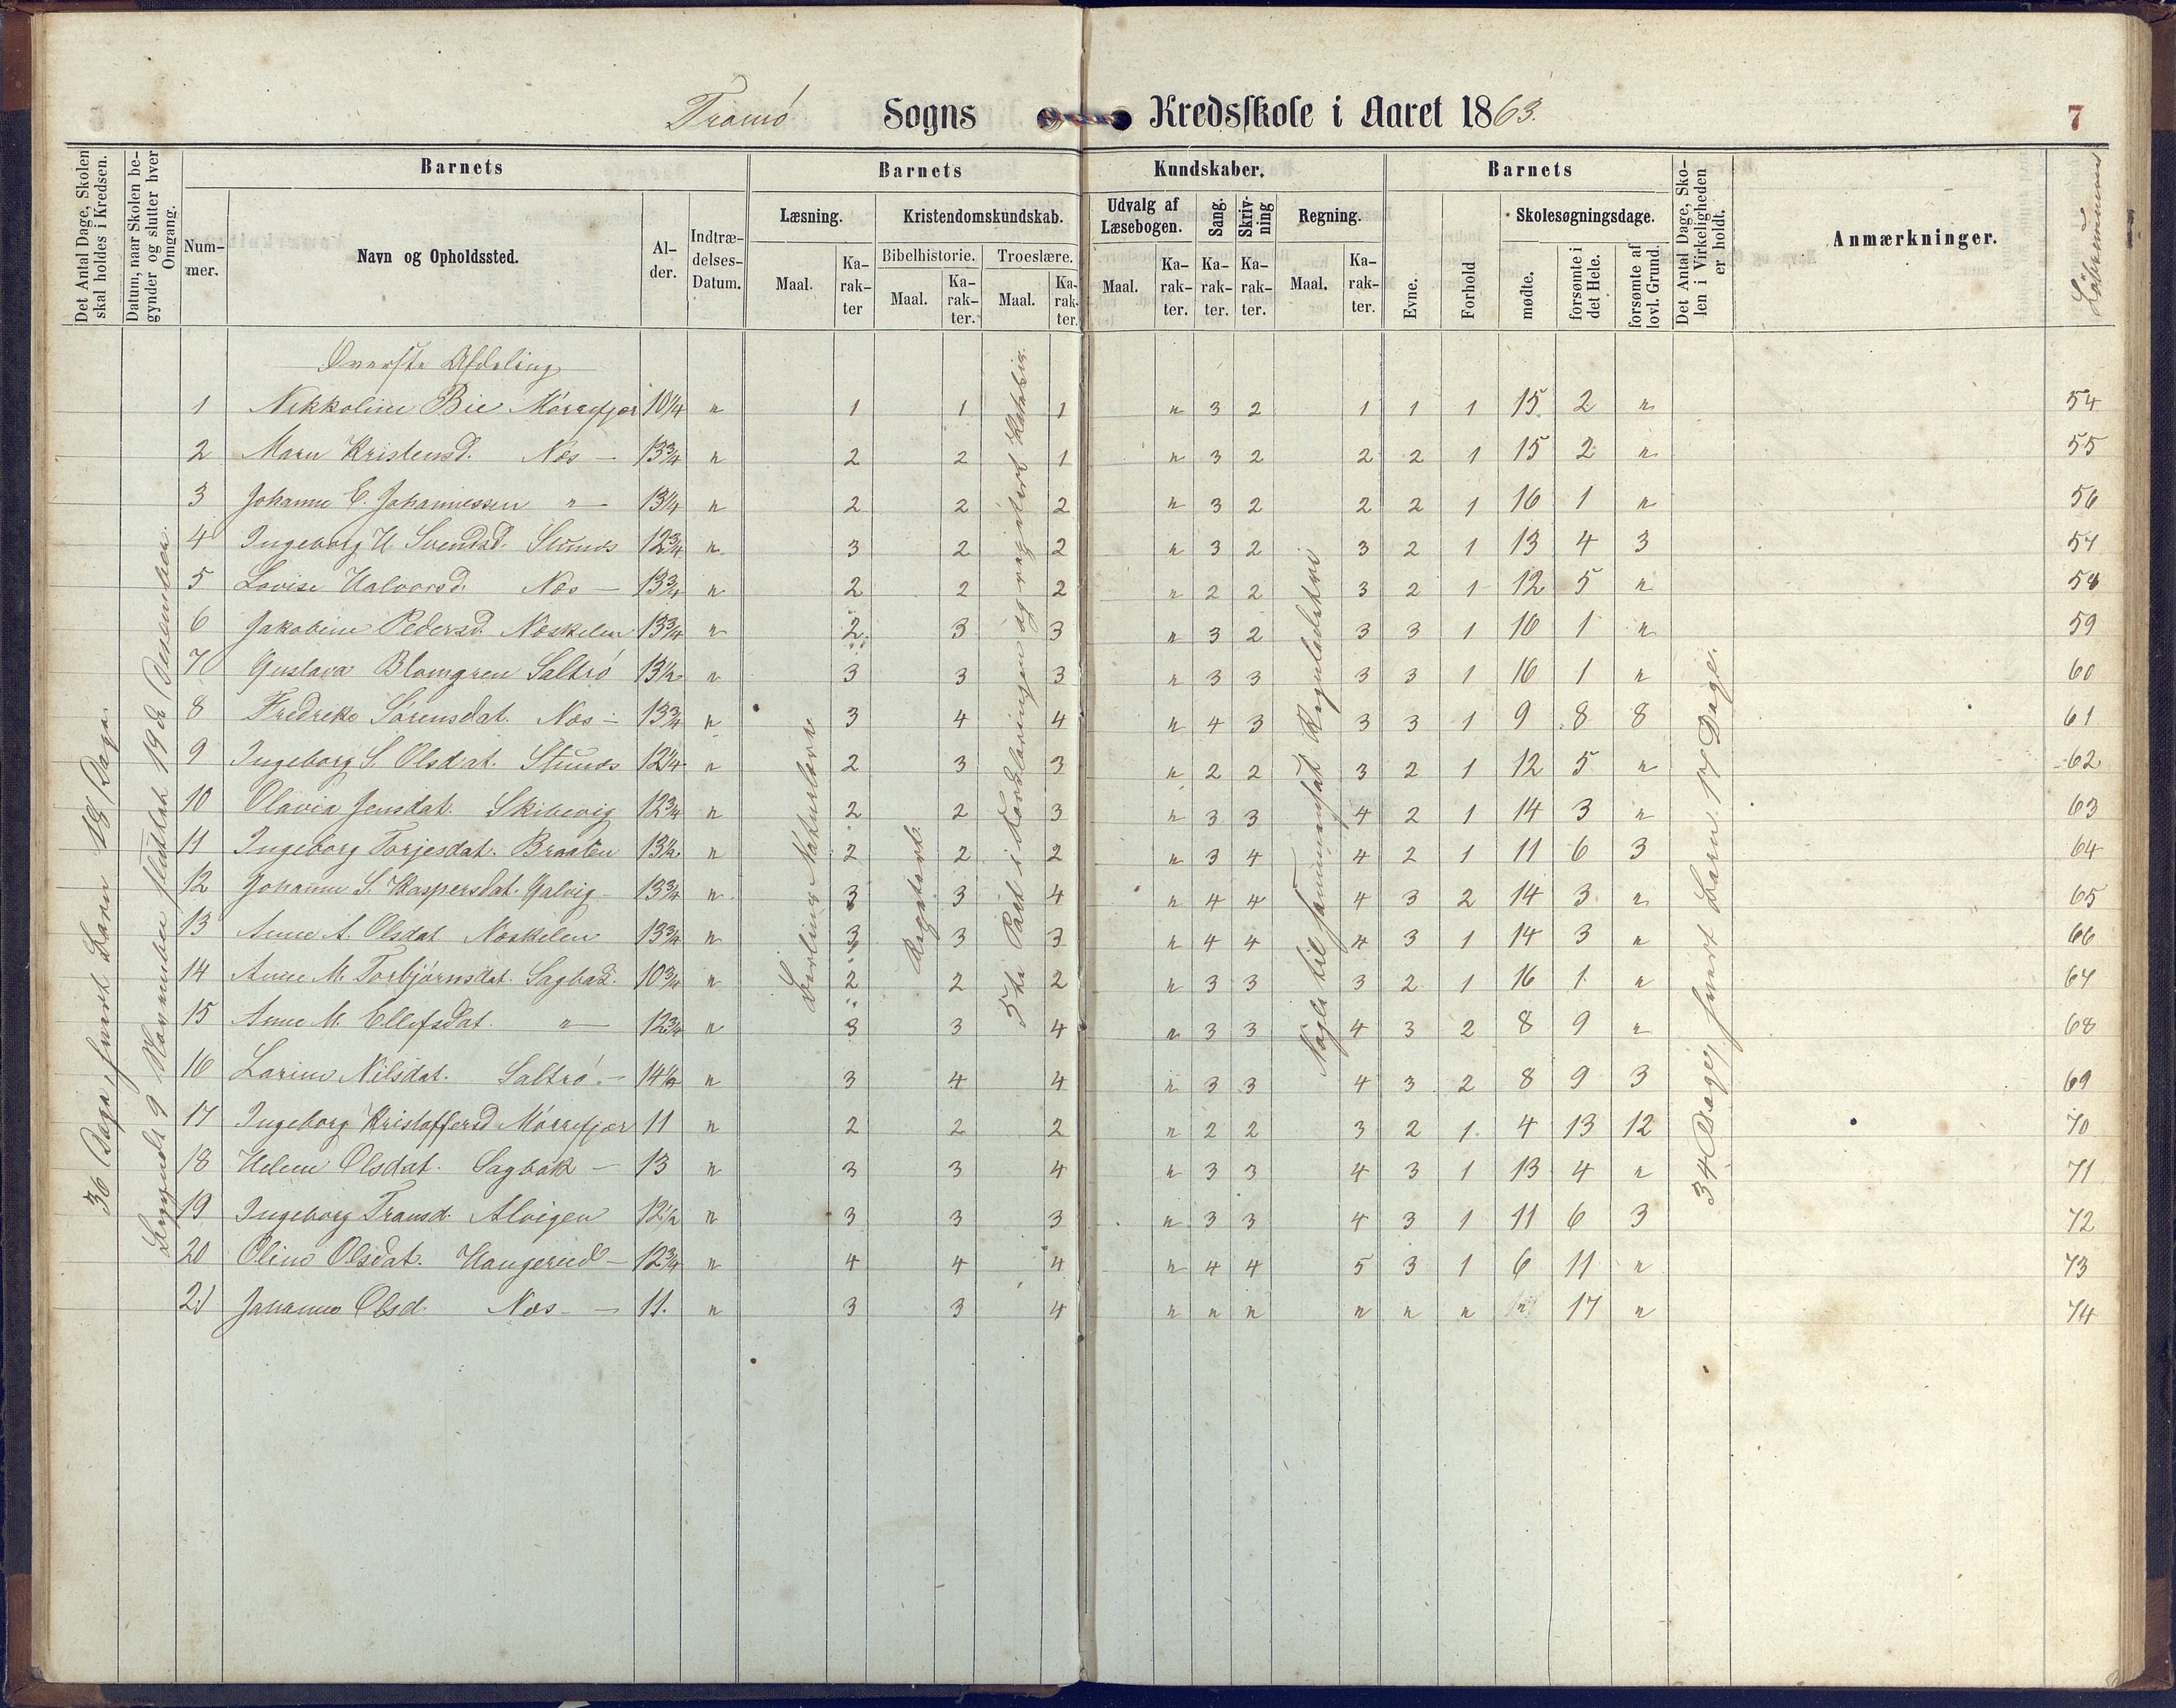 Tromö Sogns Kredsskole i Aaret 1863.
7
Det Antal Dage, Skolen skal holdes i Kredsen.
Datum, naar Skolen begynder og slutter hver Omgang.
Barnets
Nummer.
Navn og Opholdssted.
Alder.
Indtrædelses-Datum.
Barnets Kundskaber.
Læsning.
Maal.
Karakter
Kristendomskundskab.
Bibelhistorie.
Maal.
Karakter.
Troeslære.
Maal.
Karakter.
Udvalg af Læsebogen.
Maal.
Karakter.
Sang.
Karakter.
Skrivning
Karakter.
Regning.
Maal.
Karakter.
Barnets
Evne.
Forhold
Skolesøgningsdage.
mødte.
forsømte i det Hele.
forsømte af lovl. Grund.
Det Antal Dage, Skolen i Virkeligheden er holdt.
Anmærkninger.
Löbenummer
36 Dage, hvert Barn 18 Dage.
Begyndt 9 November sluttet 19de December.
34 Dage, hvert Barn 17 Dage.
Øverste Afdeling
1 Nikkoline Bie Mörrefjær 10 1/4 " 1 1 1 " 3 2 1 1 1 15 2 " 54
2 Maren Kristensd. Næs — 13 3/4 " 2 2 1 " 3 2 2 2 1 15 2 " 55
3 Johanne C. Johannessen " — 13 1/4 " 2 2 2 " 3 2 2 2 1 16 1 " 56
4 Ingeborg H. Svendsd. Stunæs 12 3/4 " 3 2 2 " 3 2 3 2 1 13 4 3 57
5 Lovise Halvorsd. Næs — 13 3/4 " 2 2 2 " 2 2 3 2 1 12 5 " 58
6 Jakobine Pedersd. Næskilen 13 3/4 " 2 3 3 " 3 2 3 3 1 16 1 " 59
7 Gustava Blomgren Saltrö 13 1/2 " 3 3 3 " 3 3 3 3 1 16 1 " 60
8 Fredrikke Sörensdat. Næs — 13 3/4 " 3 4 4 " 4 3 3 3 1 9 8 8 61
9 Ingeborg S. Olsdat. Stunæs 12 1/4 " 2 3 3 " 2 2 3 2 1 12 5 " 62
10 Olavia Jensdat. Skibevig 12 3/4 " 2 2 3 " 3 3 4 2 1 14 3 " 63
11 Ingeborg Torjesdat. Braaten 13 1/2 " 2 2 2 " 3 4 4 2 1 11 6 3 64
12 Johanne S. Kaspersdat. Galvig 13 3/4 " 3 3 4 " 4 4 4 3 2 14 3 " 65
13 Anne A. Olsdat Næskilen 13 3/4 " 3 3 3 " 4 4 4 3 1 14 3 " 66
14 Anne M. Torbjörnsdat. Sagbak. 10 3/4 " 2 2 2 " 3 3 3 2 1 16 1 " 67
15 Anne M. Ellefsdat. " — 12 3/4 " 3 3 4 " 3 3 4 3 2 8 9 " 68
16 Larine Nilsdat. Saltrö — 14 1/2 " 3 4 4 " 3 3 4 3 2 8 9 3 69
17 Ingeborg Kristoffersd Mörrefjær 11 " 2 2 2 " 2 2 3 2 1 4 13 12 70
18 Helene Olsdat. Sagbak — 13 " 3 3 4 " 3 3 4 3 1 13 4 " 71
19 Ingeborg Tramsd. Alvigen 12 1/2 " 3 3 3 " 3 3 4 3 1 11 6 3 72
20 Oline Olsdat. Haugerud — 12 3/4 " 4 4 4 " 4 4 5 3 1 6 11 " 73
21 Johanne Olsd. Næs — 11. " 3 3 4 " " " " " " " 17 " 74
Repeteret.
5te Part i Forklaringen og repeteret Katekis.
Nogle til sammensat Reguladetri